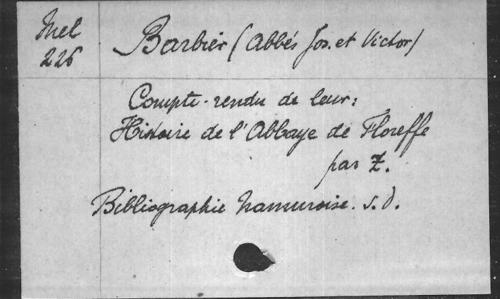 Mel
226
Barbier (Abbés Jos. et Victor)
Compte-rendu de leur:
Histoire de l'Abbaye de Floreffe
par Z.
Bibliographie Namuroise. s.d.